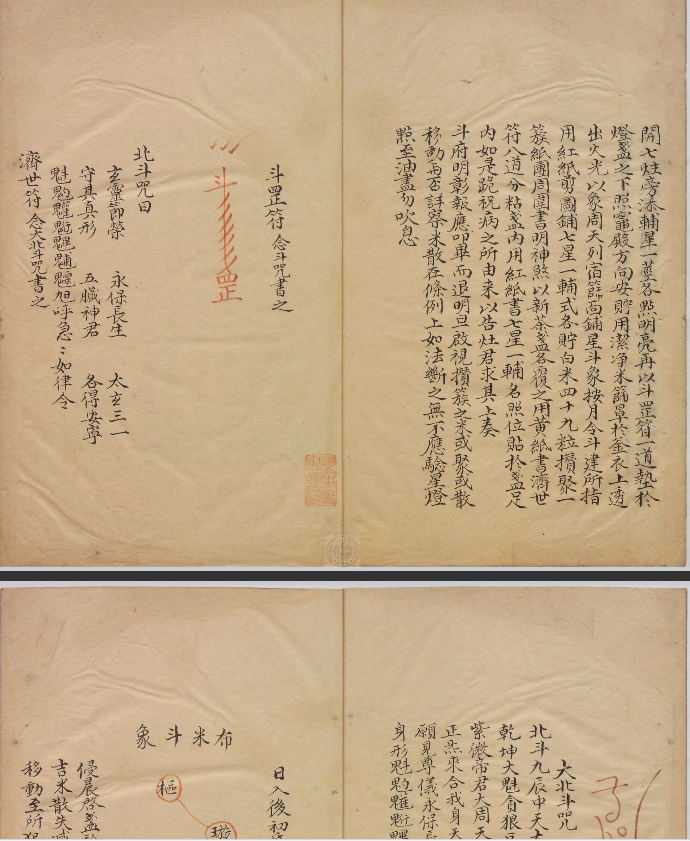 開七灶旁添輔星一壺各點明亮再以斗罡符一道墊於
燈盞之下照竈殿方向安貯用潔净米篩罩於釜衣上透
出火光以象周天列宿篩面鋪星斗象按月令斗建所指
用紅紙剪圓鋪七星一輔式各貯白米四十九粒攢聚一
簇紙圈周圍書明神煞以新茶盞各覆之用黃紙書濟世
符八道分粘盞內用紅紙書七星一輔名照位貼於盞足
內如是跪祝病之所由來以告灶君求其上奏
斗府明彰報應叩畢而退明旦啟視攢簇之米或聚或散
移動與否詳察米散在條例上如法斷之無不應驗星燈
照至油盡勿吹息
斗罡符 念斗咒書之
斗 罡
北斗咒曰
玄靈節榮 永保長生 太玄三一
守其真形 五臟神君 各得安寧
魁䰢䰤魓䰥旭呼急〻如律令
濟世符 念大北斗咒書之
大北斗咒
北斗九辰中天大
乾坤大魁貪狼
紫微帝君大周天
正炁來合我身天
願見尊儀永保
身形魁
日入後初
布米斗象
樞
璇
侵晨啓盞
吉米散失
移動至所